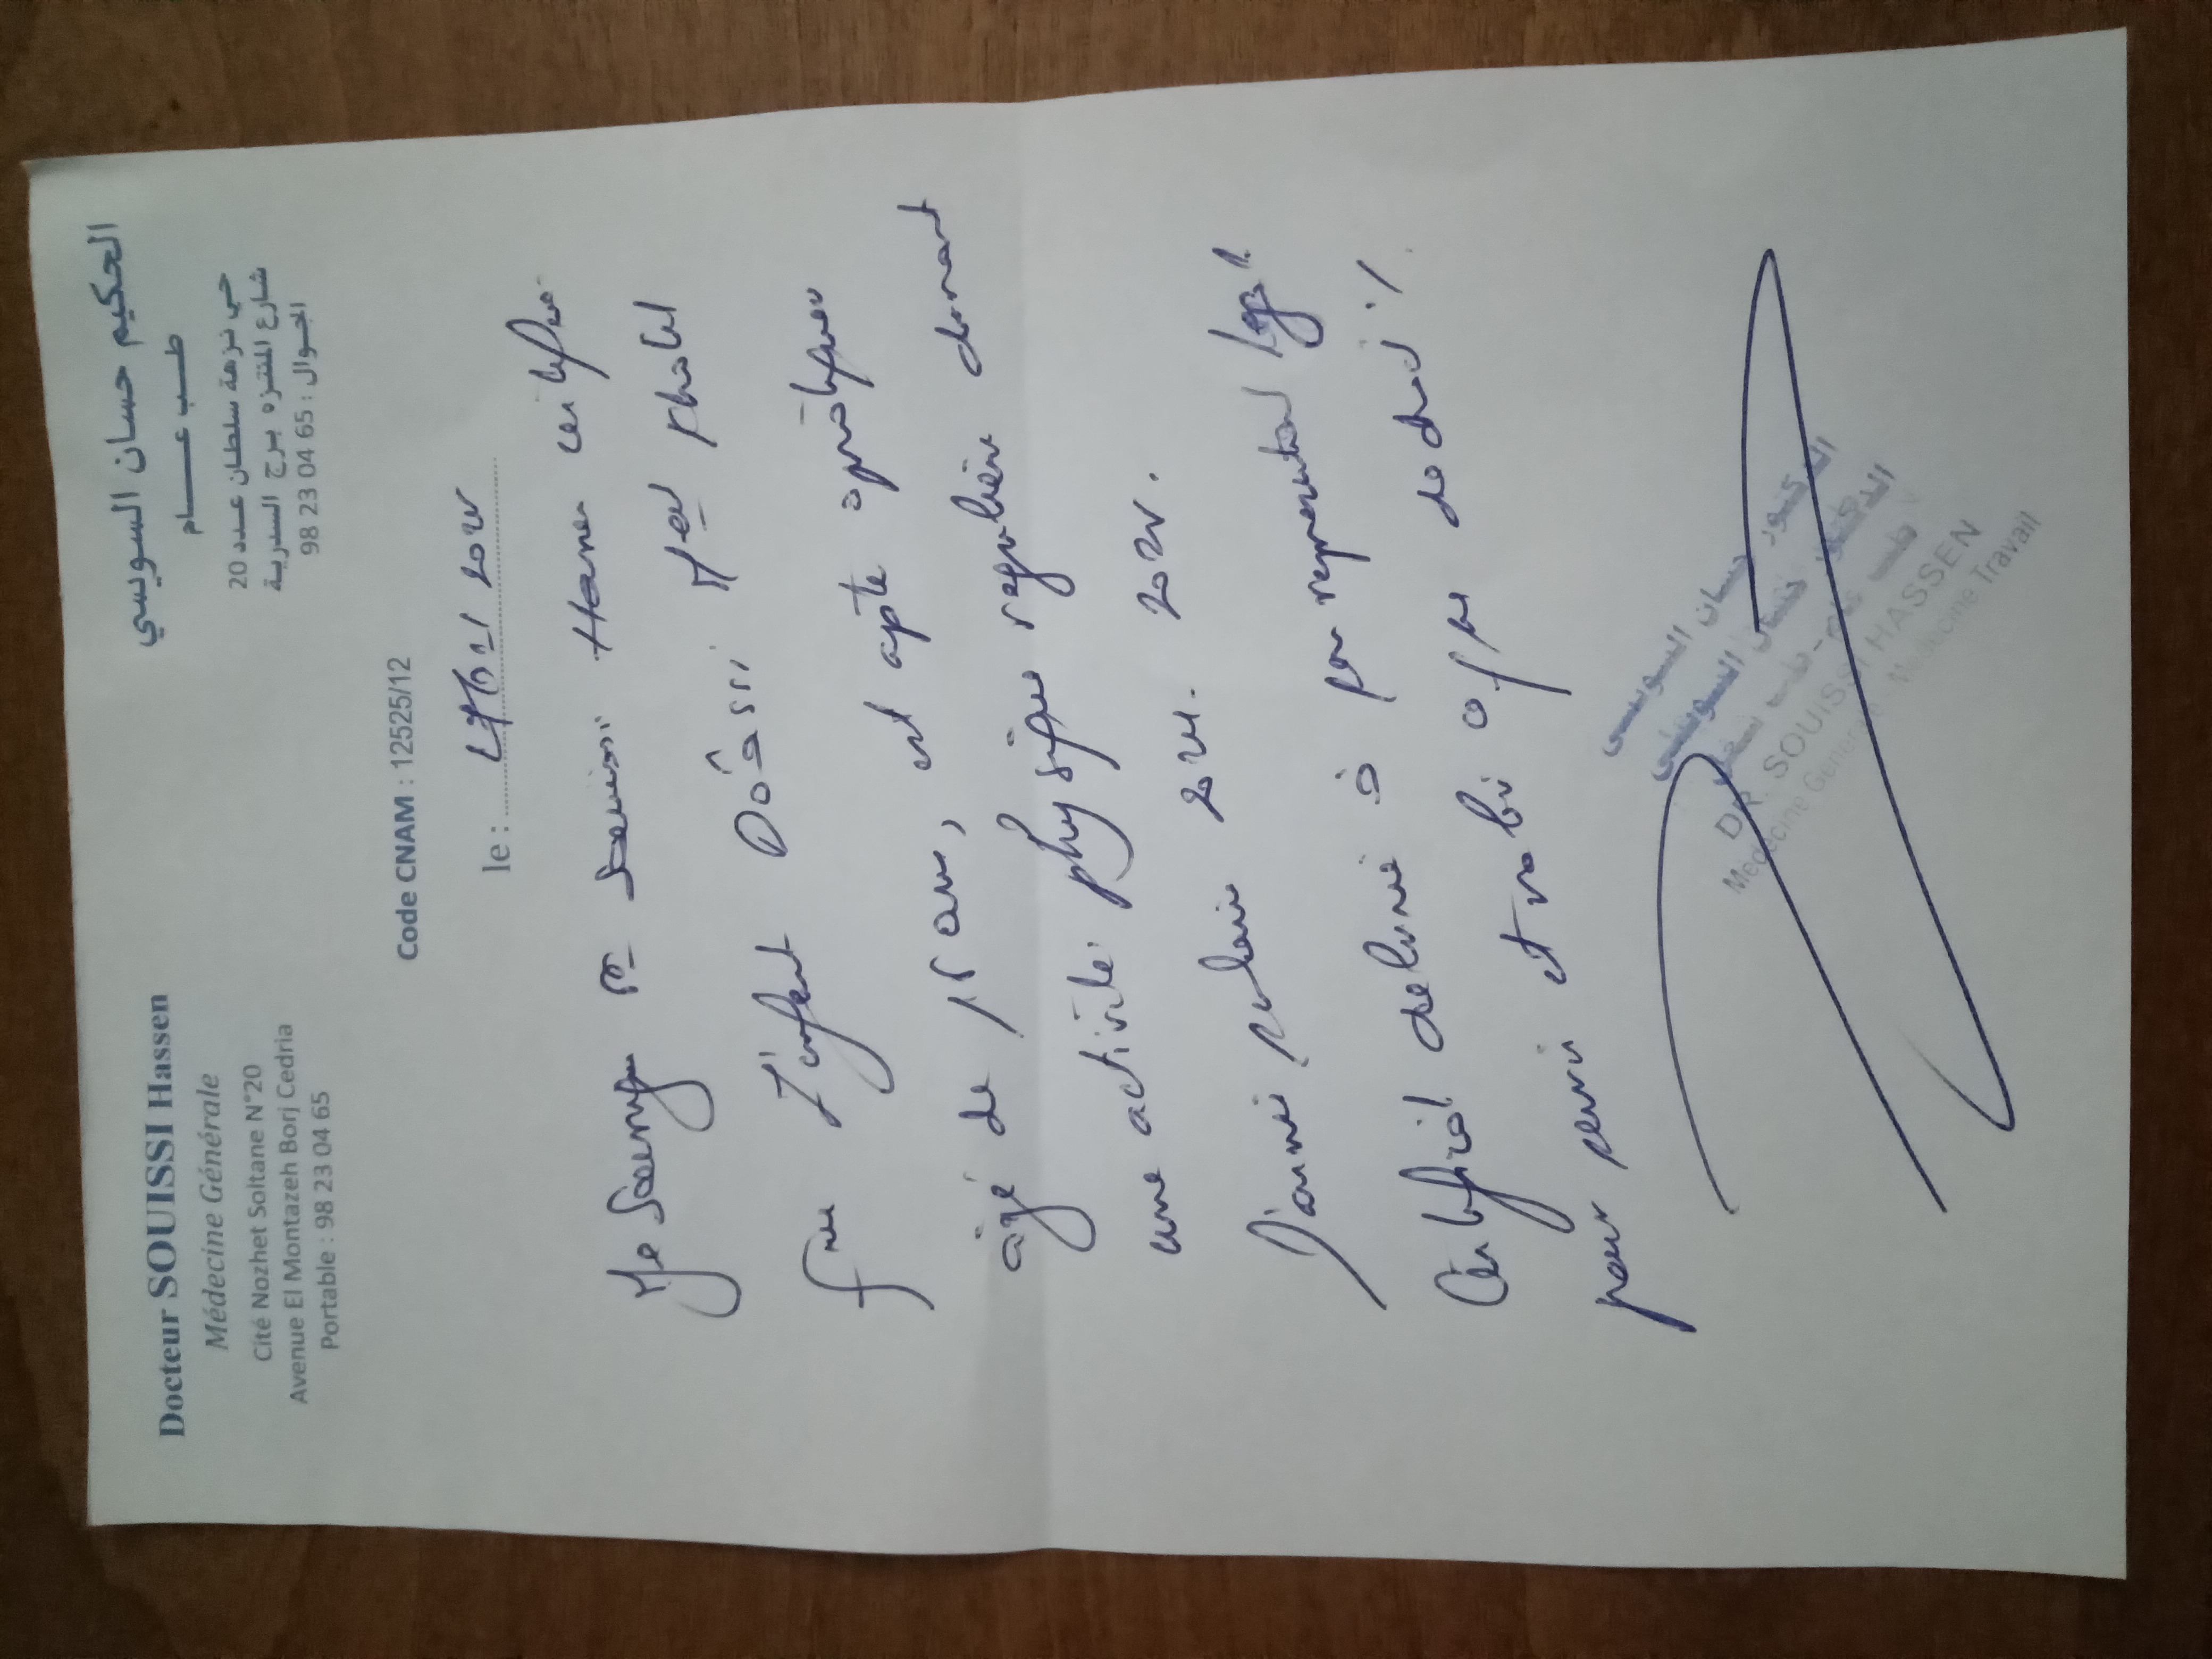 Docteur SOUISSI Hassen
Médecine Générale
Cité Nozhet Soltane N°20
Avenue El Montazeh Borj Cedria
Portable : 98 23 04 65
الحكيم حسان السويسي
طب عام
حي نزهة سلطان عدد 20
شارع المنتزه برج السدرية
الجوال : 98 23 04 65
Code CNAM : 12525/12
le :
Je Soussigné Dr Souissi Hassen certifie
que l'enfant
âgé de 15 ans, est apte à pratiquer
une activité physique régulière durant
l'année scolaire 2021. 2022.
Certificat délivré à son représentant légal
pour servir et valoir à qui de droit ./.
الدكتور حسان السويسي
الدكتور حسان السويسي
DR. SOUISSI HASSEN
Médecine Générale - Médecine Travail